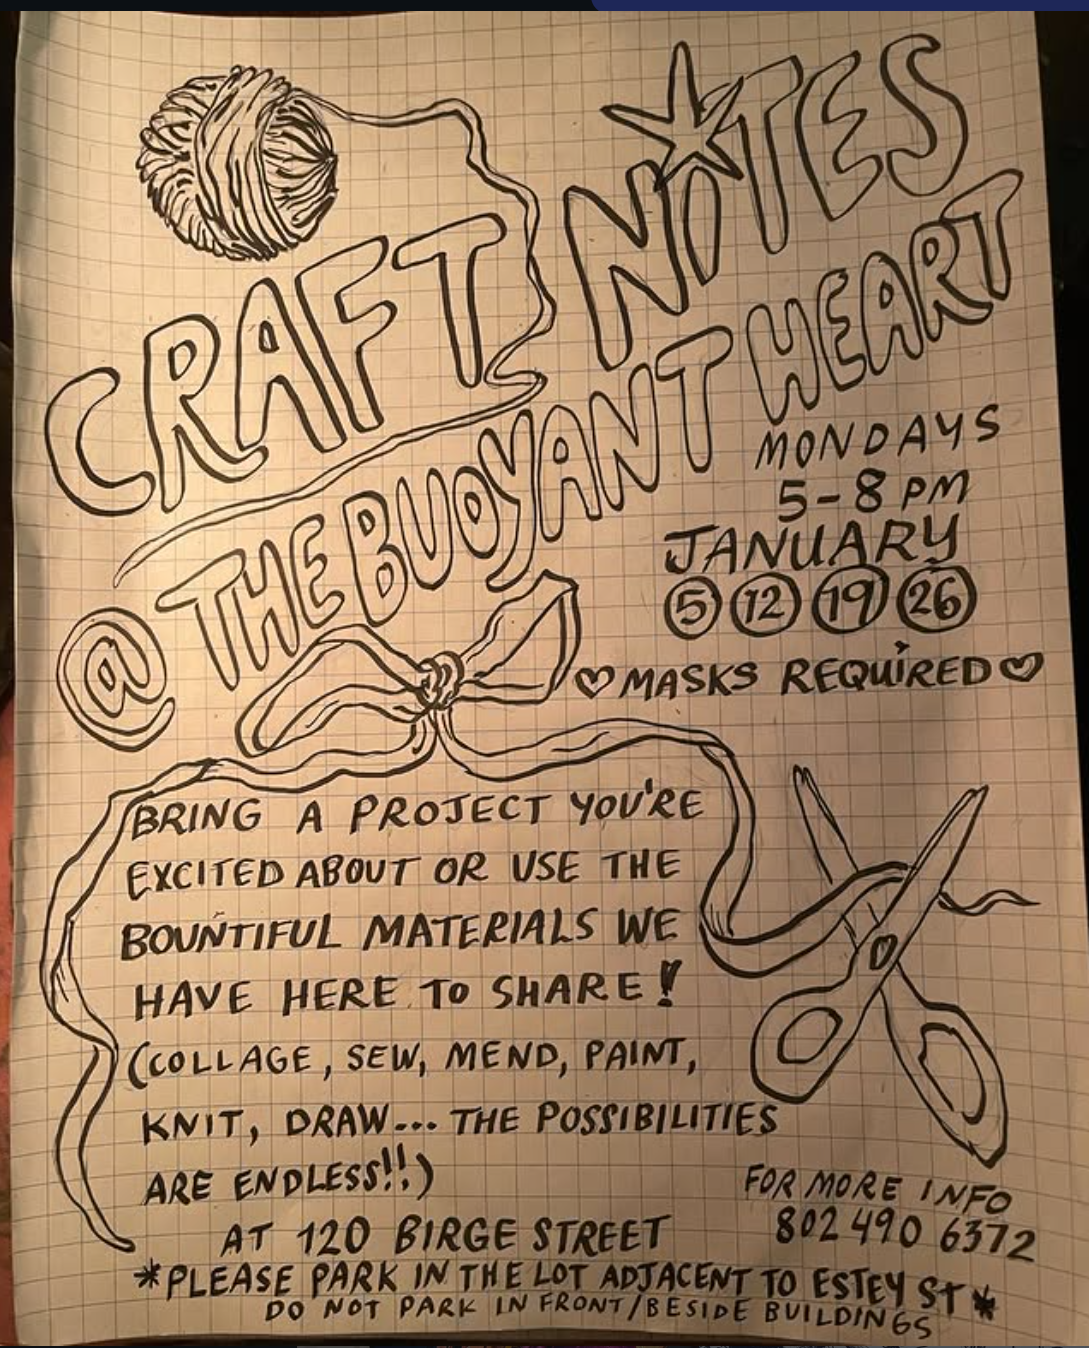 CRAFT NITES
@ THE BUOYANT HEART
MONDAYS
5-8 PM
JANUARY
5 12 19 26
♡ MASKS REQUIRED ♡
BRING A PROJECT YOU'RE
EXCITED ABOUT OR USE THE
BOUNTIFUL MATERIALS WE
HAVE HERE TO SHARE!
(COLLAGE, SEW, MEND, PAINT,
KNIT, DRAW... THE POSSIBILITIES
ARE ENDLESS!!)
FOR MORE INFO
802 490 6372
AT 120 BIRGE STREET
*PLEASE PARK IN THE LOT ADJACENT TO ESTEY ST*
DO NOT PARK IN FRONT/BESIDE BUILDINGS